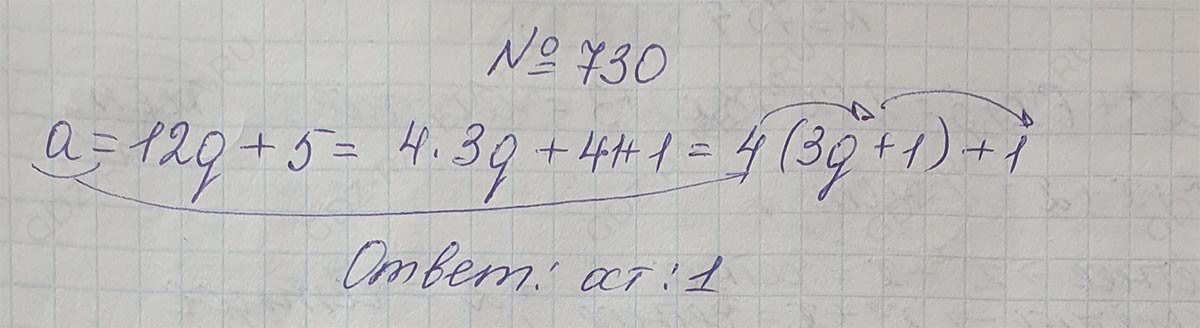 № 730
a = 12q + 5 = 4 · 3q + 4 + 1 = 4 (3q + 1) + 1
Ответ: ост: 1